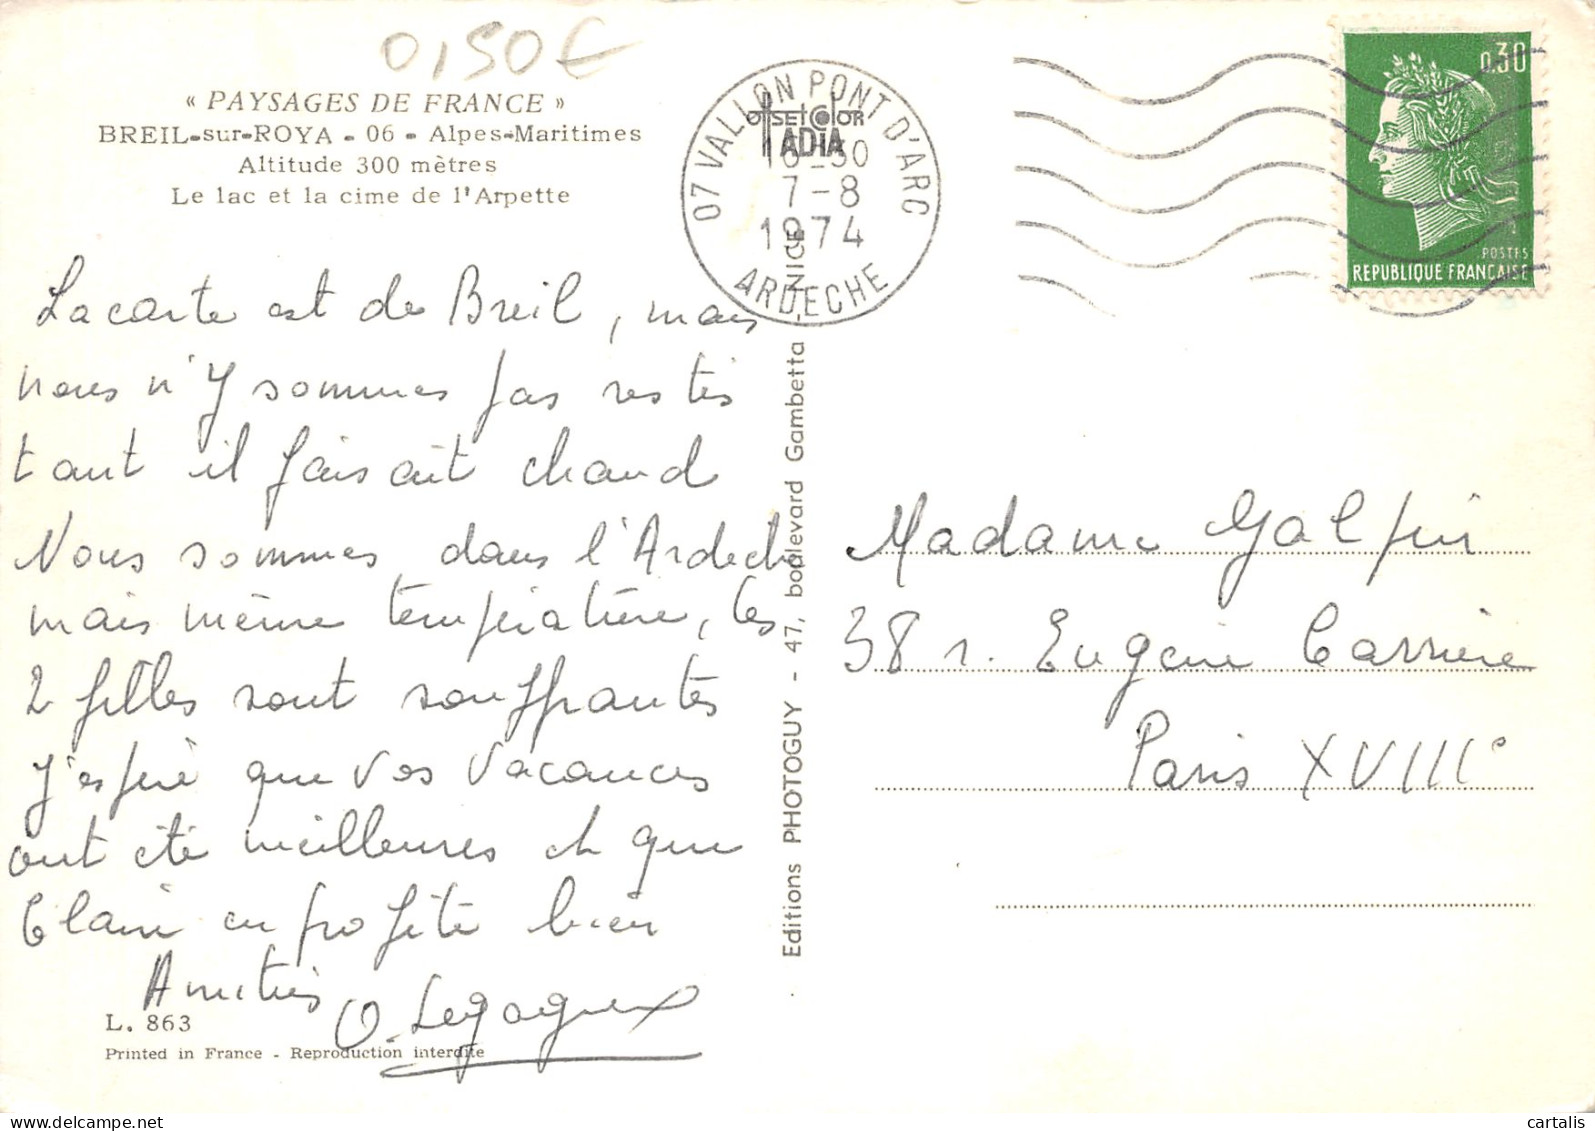 0,50€
« PAYSAGES DE FRANCE »
BREIL-sur-ROYA - 06 - Alpes-Maritimes
Altitude 300 mètres
Le lac et la cime de l'Arpette
La carte est de Breil, mais
nous n'y sommes pas restés
tant il faisait chaud
Nous sommes dans l'Ardeche
mais même température, les
2 filles sont souffrantes
J'espère que vos vacances
ont été meilleures et que
Claire en profite bien
Amitiés
L. 863
Printed in France - Reproduction interdite
07 VALLON PONT D'ARC
7-8
1974
ARDECHE
offset color
ADIA
Editions PHOTOGUY - 47, boulevard Gambetta, NICE
0,30
POSTES
REPUBLIQUE FRANCAISE
Madame Galpin
38 r. Eugène Carrière
Paris XVIIIe
cartalis | Delcampe.net